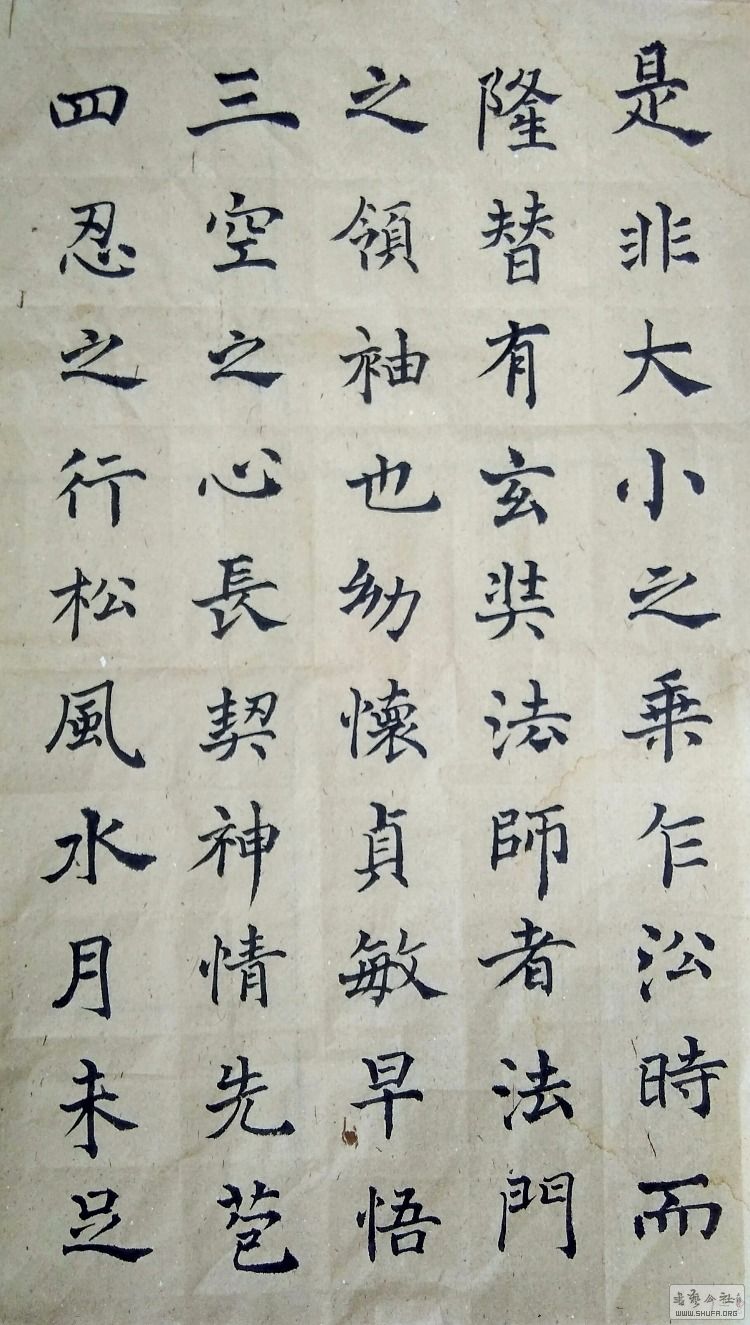 是非大小之乗乍沿時而
隆替有玄奘法師者法門
之領袖也幼懷貞敏早悟
三空之心長契神情先苞
四忍之行松風水月未足
WWW.SHUFA.ORG